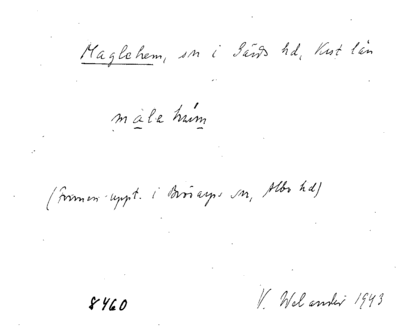 Maglehem, sn i Gärds hd, Krist län
målahæim
(Formen uppt. i Brösarps sn, Albo hd)
8460
V. Welander 1943